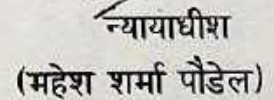 न्यायाधीश
(महेश शर्मा पौडेल)